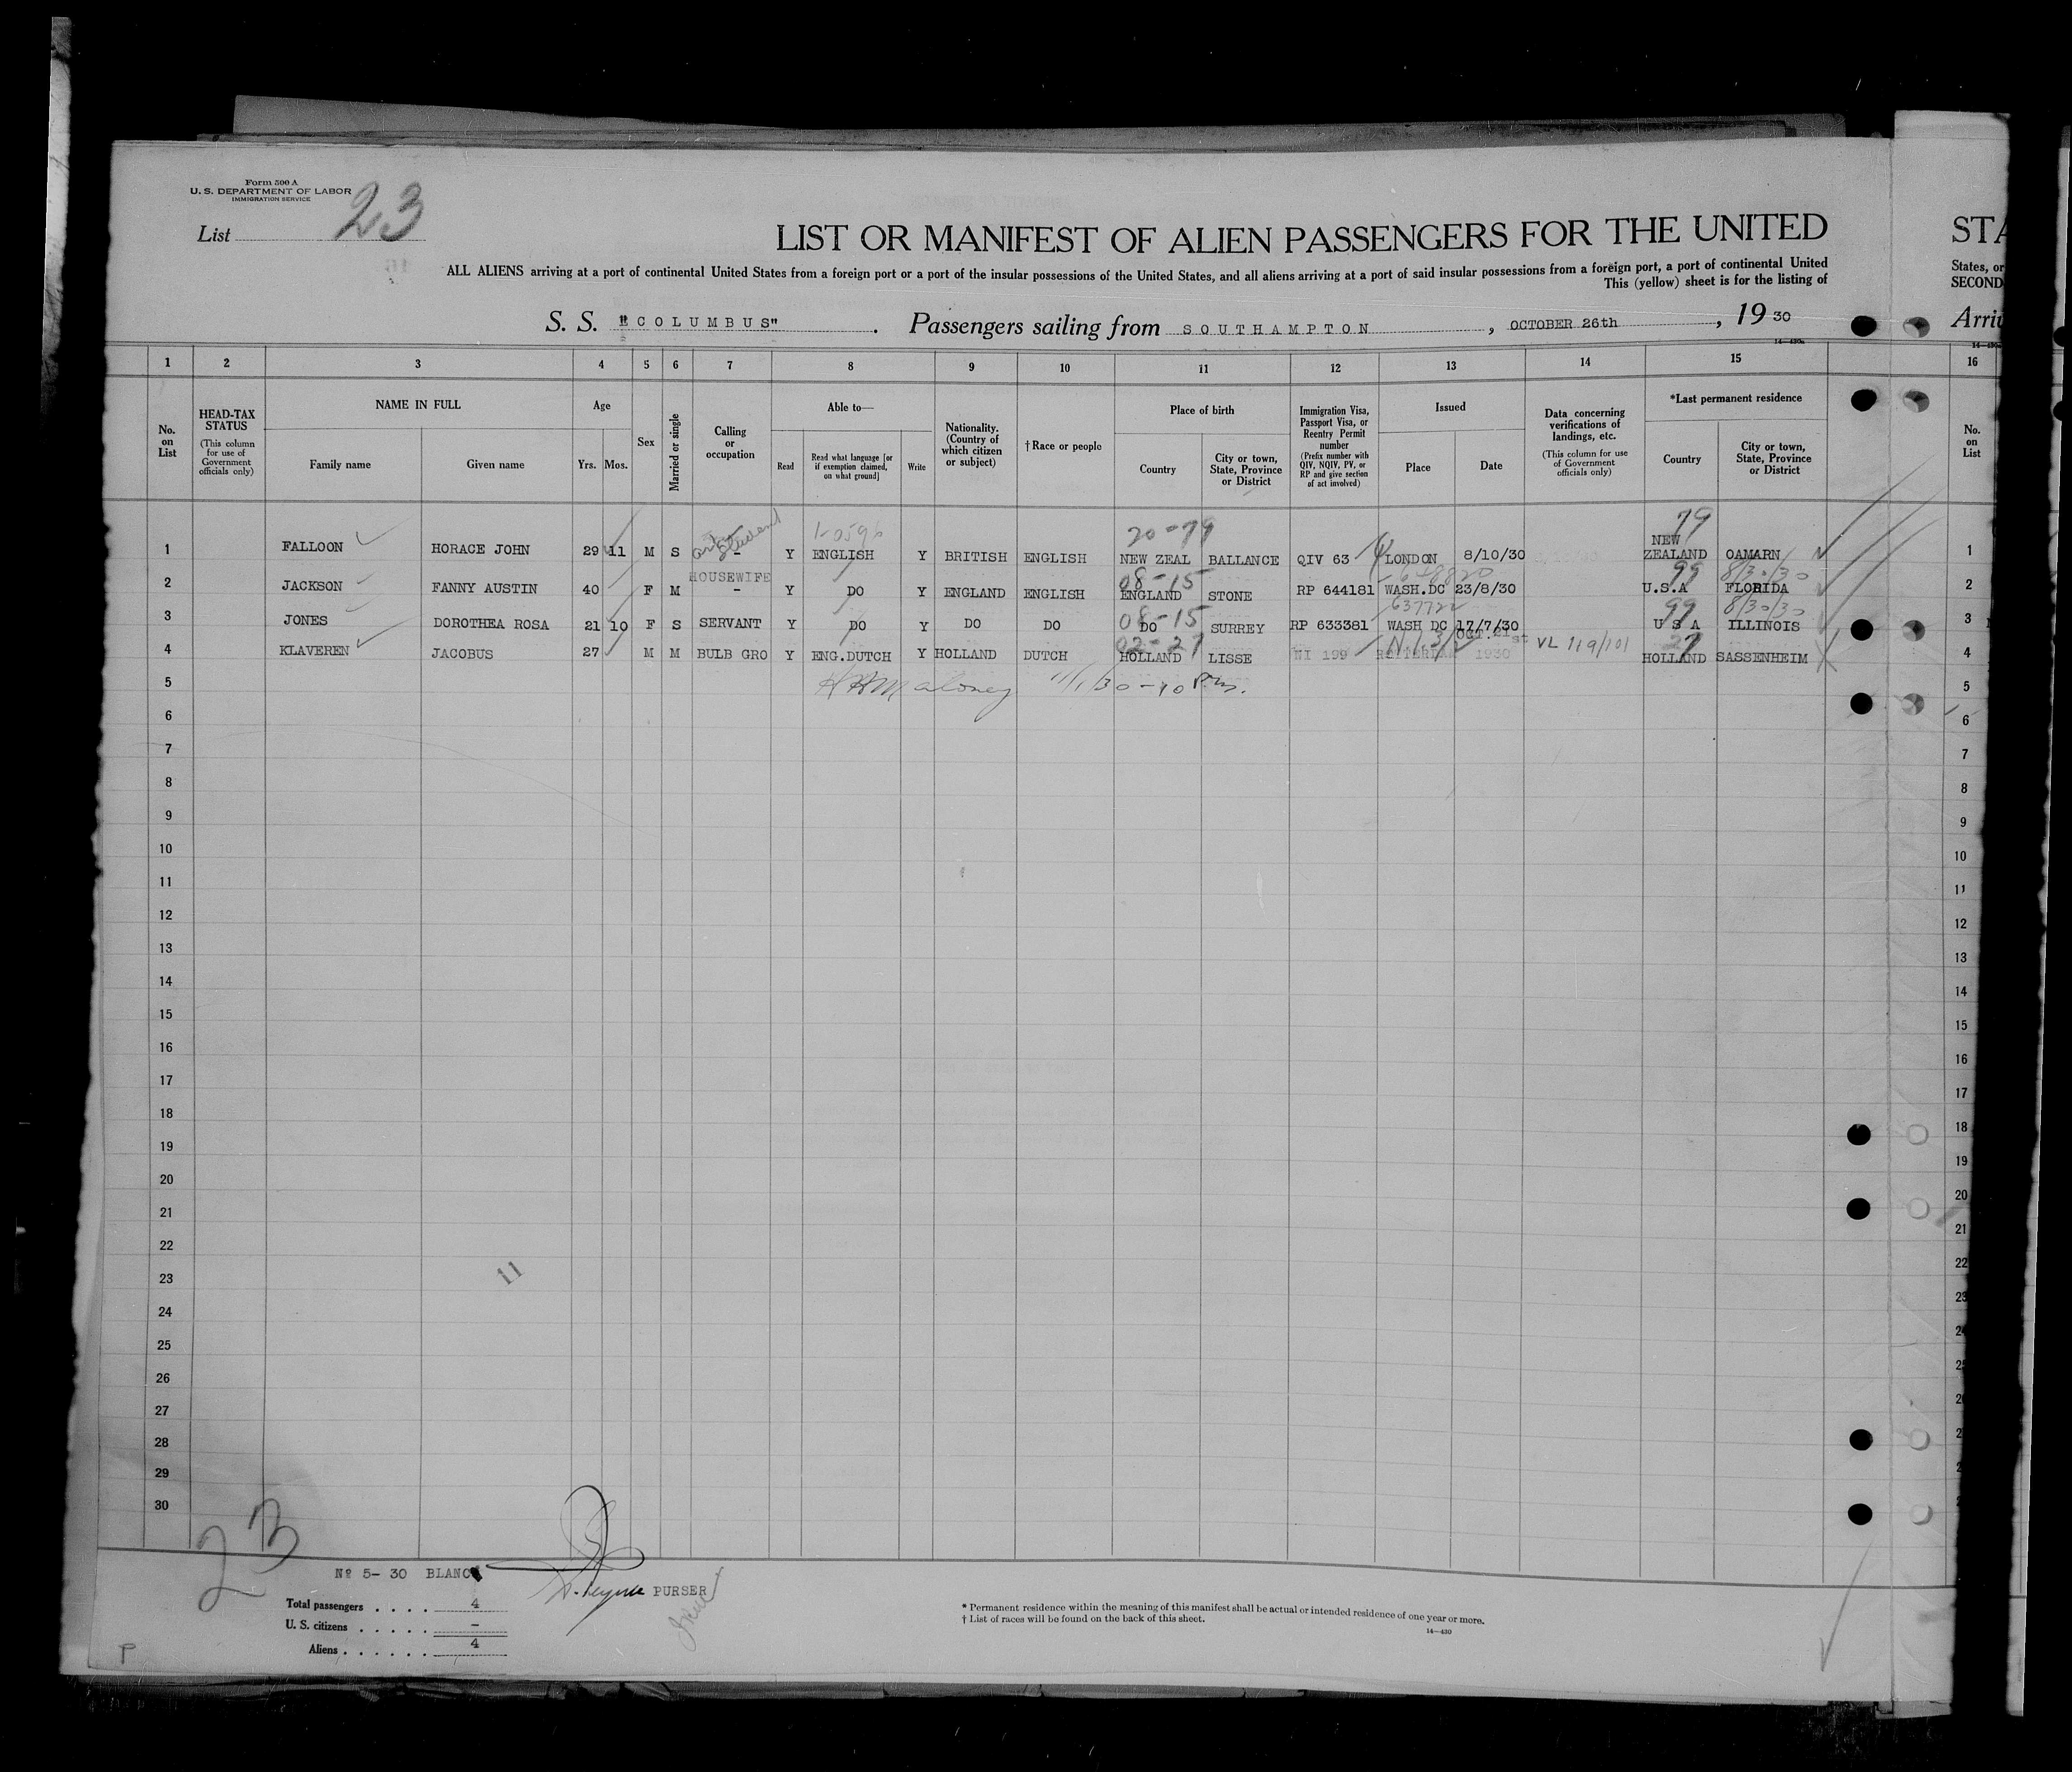 Form 500 A
U. S. DEPARTMENT OF LABOR
IMMIGRATION SERVICE
List 23
LIST OR MANIFEST OF ALIEN PASSENGERS FOR THE UNITED
STA
ALL ALIENS arriving at a port of continental United States from a foreign port or a port of the insular possessions of the United States, and all aliens arriving at a port of said insular possessions from a foreign port, a port of continental United
States, or
This (yellow) sheet is for the listing of
SECOND
S. S. "COLUMBUS". Passengers sailing from SOUTHAMPTON, OCTOBER 26th, 19 30
Arriv
14—430a
1 2 3 4 5 6 7 8 9 10 11 12 13 14 15 16
No. on List
HEAD-TAX STATUS (This column for use of Government officials only)
NAME IN FULL
Family name
Given name
Age
Yrs. Mos.
Sex
Married or single
Calling or occupation
Able to—
Read
Read what language [or if exemption claimed, on what ground]
Write
Nationality. (Country of which citizen or subject)
†Race or people
Place of birth
Country
City or town, State, Province or District
Immigration Visa, Passport Visa, or Reentry Permit number (Prefix number with QIV, NQIV, PV, or RP and give section of act involved)
Issued
Place
Date
Data concerning verifications of landings, etc. (This column for use of Government officials only)
*Last permanent residence
Country
City or town, State, Province or District
No. on List
20-79 79
1 FALLOON HORACE JOHN 29 11 M S student - Y ENGLISH Y BRITISH ENGLISH NEW ZEAL BALLANCE QIV 63 LONDON 8/10/30 NEW ZEALAND OAMARN 1
08-15 99 8/30/30
2 JACKSON FANNY AUSTIN 40 F M HOUSEWIFE - Y DO Y ENGLAND ENGLISH ENGLAND STONE RP 644181 WASH.DC 23/8/30 U.S.A FLORIDA 2
08-15 637722 99 8/30/30
3 JONES DOROTHEA ROSA 21 10 F S SERVANT Y DO Y DO DO DO SURREY RP 633381 WASH DC 17/7/30 U S A ILLINOIS 3
02-27 27
4 KLAVEREN JACOBUS 27 M M BULB GRO Y ENG.DUTCH Y HOLLAND DUTCH HOLLAND LISSE NI 199 OCT. 21st 1930 VL 119/101 HOLLAND SASSENHEIM 4
5 Maloney 11/1/30-10 Pm. 5
6 6
7 7
8 8
9 9
10 10
11 11
12 12
13 13
14 14
15 15
16 16
17 17
18 18
19 19
20 20
21 21
22 22
23 11
24
25
26
27
28
29
30
23
Nº 5- 30 BLANC
PURSER
Total passengers . . . . 4
U. S. citizens . . . . . -
Aliens . . . . . . 4
* Permanent residence within the meaning of this manifest shall be actual or intended residence of one year or more.
† List of races will be found on the back of this sheet.
14—430
P